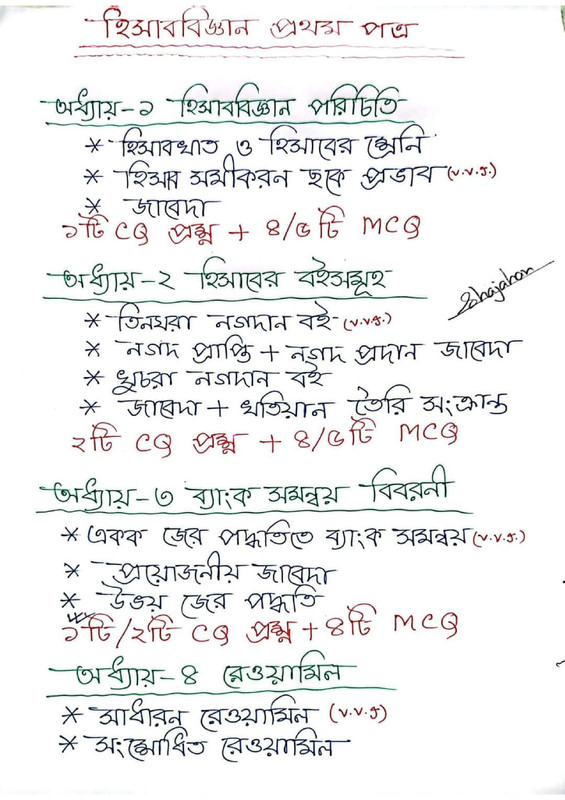 হিসাববিজ্ঞান প্রথম পত্র
অধ্যায়-১ হিসাববিজ্ঞান পরিচিতি
* হিসাবখাত ও হিসাবের শ্রেনি
* হিসাব সমীকরন ছকে প্রভাব (v.v.g.)
* জাবেদা
১টি CQ প্রশ্ন + ৪/৫ টি MCQ
অধ্যায়-২ হিসাবের বইসমূহ
Shajahan
* তিনঘরা নগদান বই-(v.v.g.)
* নগদ প্রাপ্তি + নগদ প্রদান জাবেদা
* খুচরা নগদান বই
* জাবেদা + খতিয়ান তৈরি সংক্রান্ত
২টি CQ প্রশ্ন + ৪/৫টি MCQ
অধ্যায়-৩ ব্যাংক সমন্বয় বিবরনী
* একক জের পদ্ধতিতে ব্যাংক সমন্বয় (v.v.g.)
* প্রয়োজনীয় জাবেদা
* উভয় জের পদ্ধতি
১টি/২টি CQ প্রশ্ন + ৪টি MCQ
অধ্যায়-৪ রেওয়ামিল
* সাধারন রেওয়ামিল (v.v.g)
* সংশোধিত রেওয়ামিল